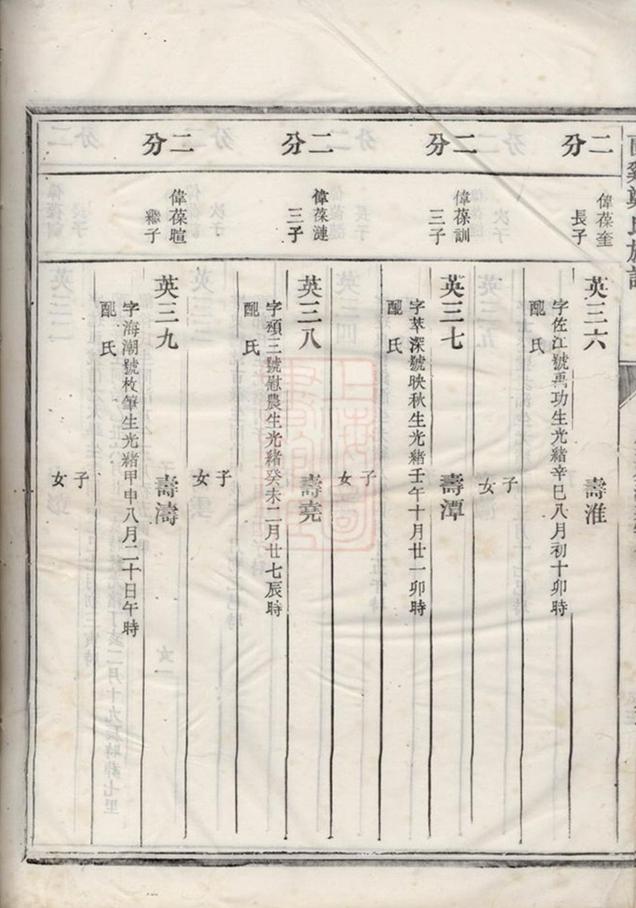 二分
偉葆奎
長子
英三六 壽淮
字佐江號禹功生光緒辛巳八月初十卯時
配 氏
子
女
二分
偉葆訓
三子
英三七 壽潭
字萃深號映秋生光緒壬午十月廿一卯時
配 氏
子
女
二分
偉葆漣
三子
英三八 壽堯
字碩三號慰農生光緒癸未二月廿七辰時
配 氏
子
女
二分
偉葆暄
繼子
英三九 壽濤
字海潮號枚筆生光緒甲申八月二十日午時
配 氏
子
女